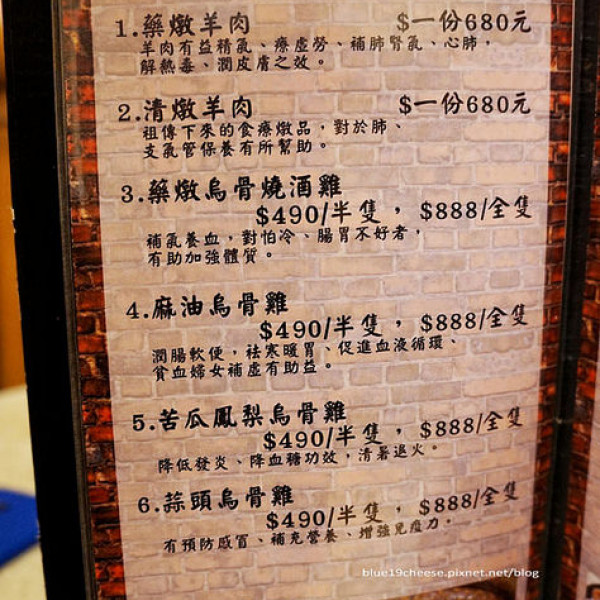 1.藥燉羊肉 $一份680元
羊肉有益精氣、療虛勞、補肺腎氣、心肺，
解熱毒、潤皮膚之效。
2.清燉羊肉 $一份680元
祖傳下來的食療燉品，對於肺、
支氣管保養有所幫助。
3.藥燉烏骨燒酒雞
$490/半隻，$888/全隻
補氣養血，對怕冷、腸胃不好者，
有助加強體質。
4.麻油烏骨雞
$490/半隻，$888/全隻
潤腸軟便，祛寒暖胃、促進血液循環、
貧血婦女補虛有助益。
5.苦瓜鳳梨烏骨雞
$490/半隻，$888/全隻
降低發炎、降血糖功效，清暑退火。
6.蒜頭烏骨雞
$490/半隻，$888/全隻
有預防感冒、補充營養、增強免疫力。
blue19cheese.pixnet.net/blog